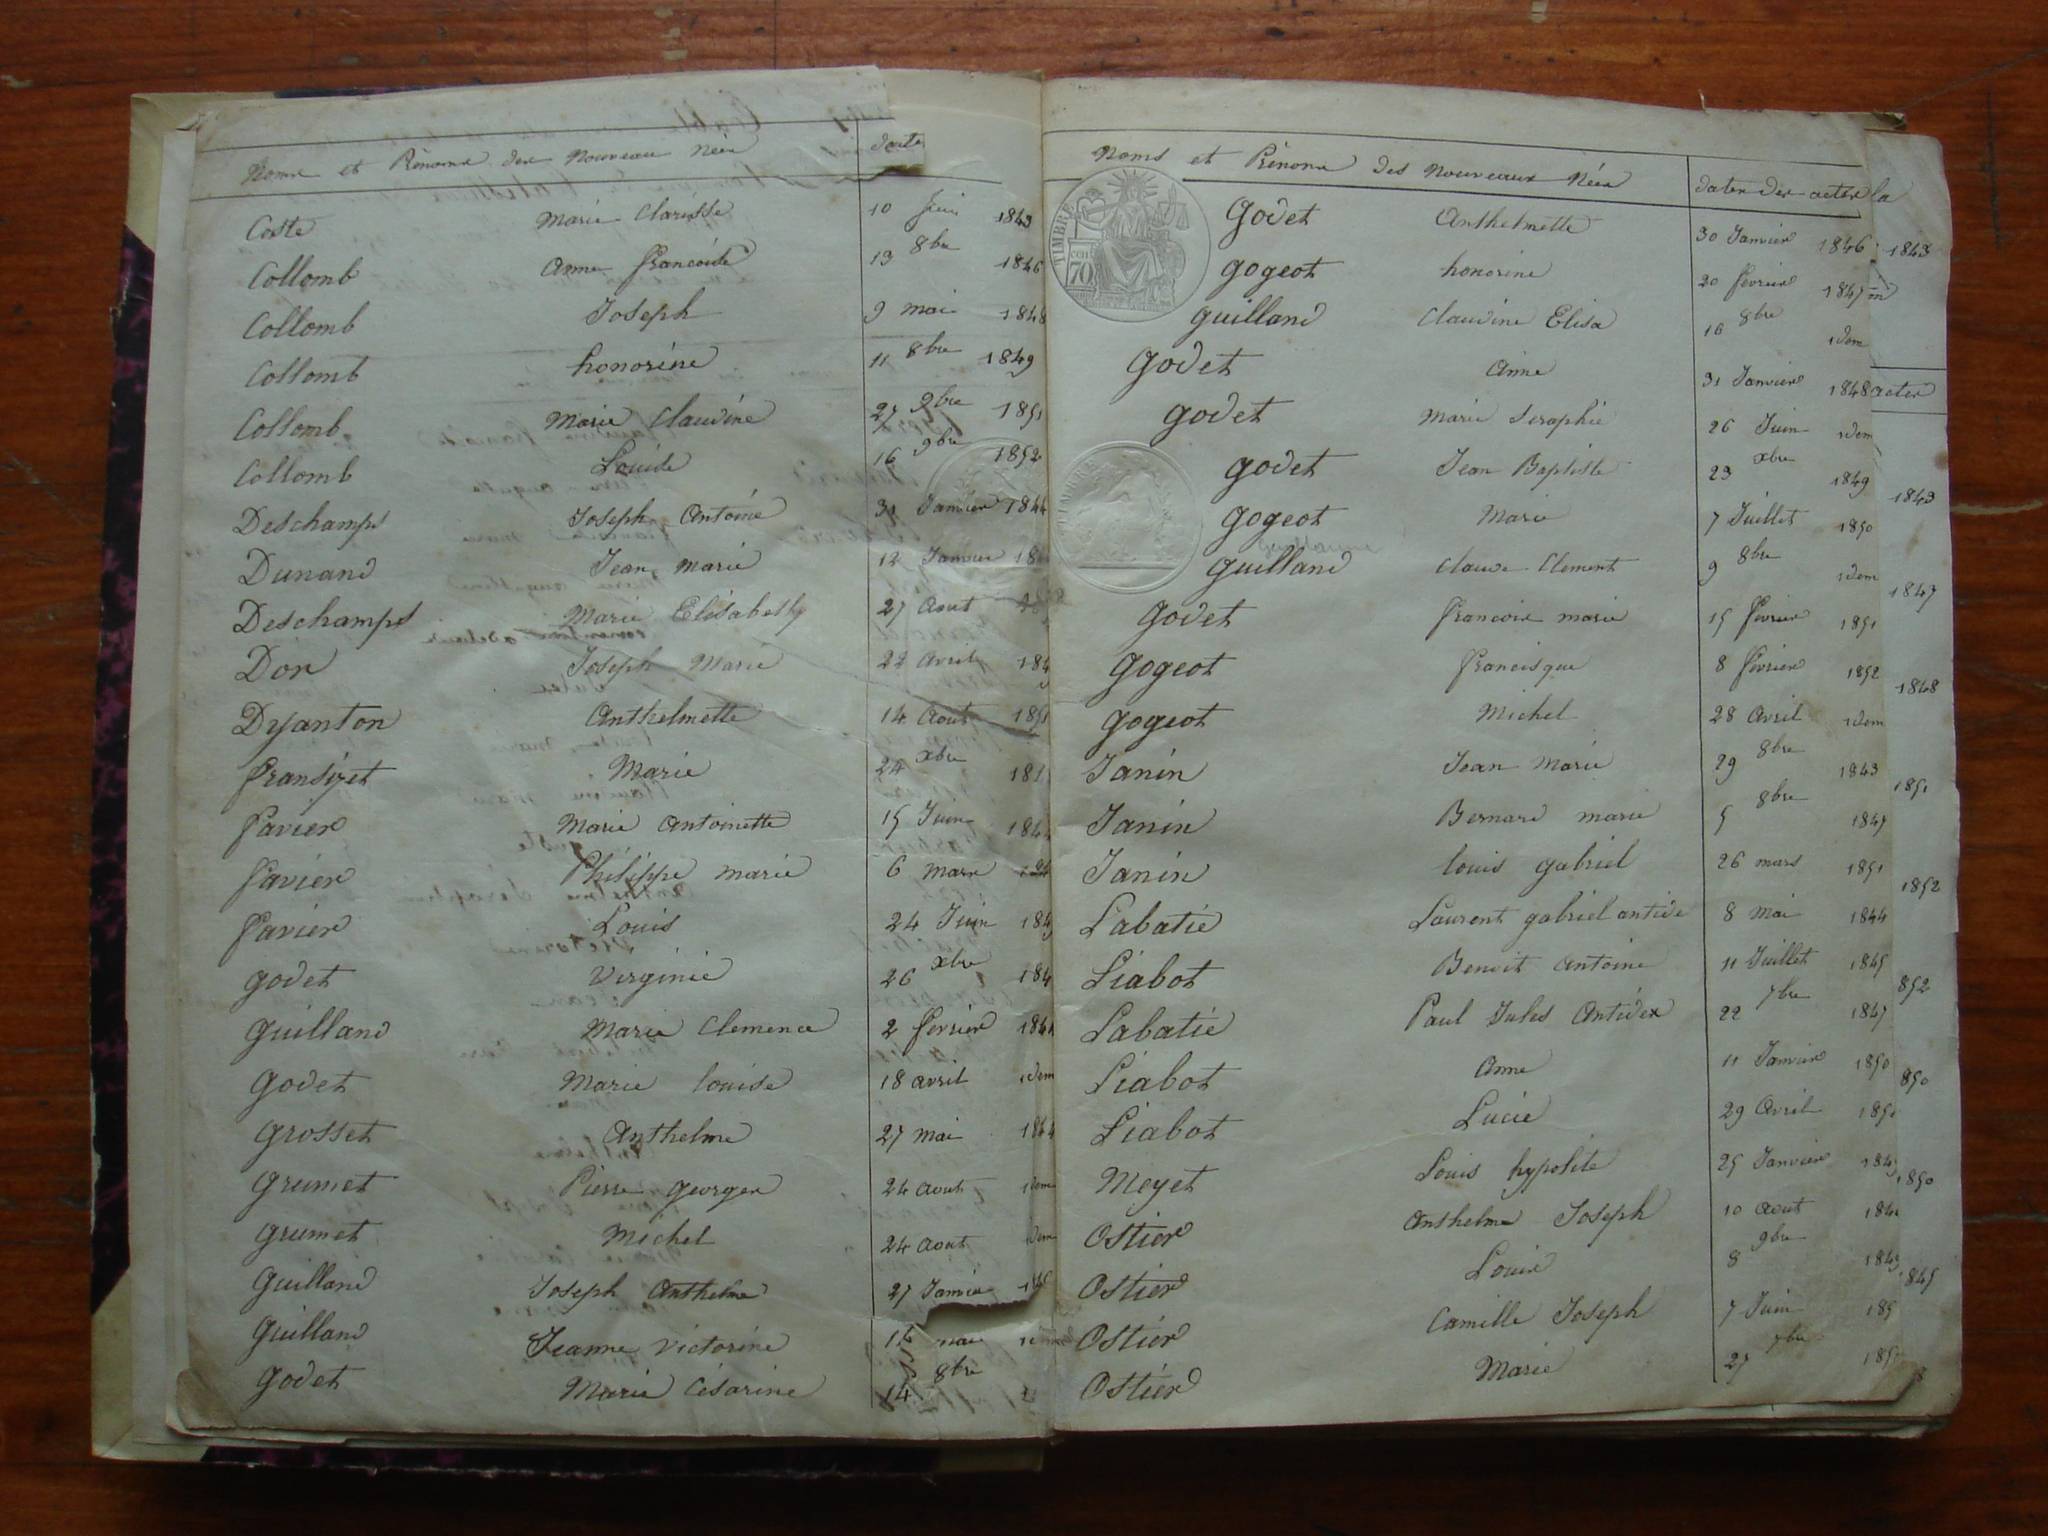 Noms et Prénoms des Nouveau Nées date
Coste Marie Clarisse 10 Juin 1843
Collomb Anne Francoise 13 8bre 1846
Collomb Joseph 9 mai 1848
Collomb honorine 11 8bre 1849
Collomb Marie Claudine 27 9bre 1851
Collomb Louise 16 9bre 1852
Deschamps Joseph Antoine 31 Janvier 1844
Dunand Jean Marie 12 Janvier
Deschamps Marie Elisabeth 27 Aout
Don Joseph Marie 22 Avril
Dyanton Anthelmette 14 Aout 1851
fransizet Marie 24 xbre
favier Marie Antoinette 15 Juin
favier Philippe marie 6 mars
favier Louis 24 Juin
godet Virginie 26 xbre
guilland Marie Clemence 2 fevrier
godet Marie louise 18 avril idem
grosset Anthelme 27 mai
grumet Pierre georges 24 aout idem
grumet Michel 24 aout idem
guilland Joseph Anthelme 27 Janvier
guilland Jeanne Victorine mai
godet Marie Césarine 14 8bre
Noms et Prénoms des Nouveaux Nées dates des actes la
TIMBRE
70
godet Anthelmette 30 Janvier 1846 1843
gogeot honorine 20 fevrier 1847
guilland Claudine Elisa 16 8bre idem
godet Anne 31 Janvier 1848 actes
godet Marie Seraphie 26 Juin idem
godet Jean Baptiste 23 xbre 1849
gogeot Marie 7 Juillet 1850 1843
guilland Claude Clement 9 8bre idem
godet francois marie 15 fevrier 1851 1847
gogeot francisque 8 fevrier 1852
gogeot Michel 28 Avril idem 1848
Janin Jean Marie 29 8bre 1843
Janin Bernard marie 5 8bre 1847 1851
Janin louis gabriel 26 mars 1851
Labatie Laurent gabriel antide 8 mai 1844 1852
Liabot Benoit Antoine 11 Juillet 1845
Labatie Paul Jules Antidex 22 7bre 1847 852
Liabot Anne 11 Janvier 1850
Liabot Lucie 29 Avril 850
Meyet Louis hypolite 25 Janvier
Ostier Anthelme Joseph 10 Aout 1850
Ostier Louis 8 9bre
Ostier Camille Joseph 7 Juin 845
Ostier Marie 27 7bre